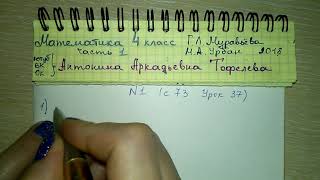 Математика 4 класс Г.Л. Муравьева
часть 1 М.А. Урбан 2018
ВК
ОК
Антонина Аркадьевна Тофелева
N1 (с 73 Урок 37)
1)